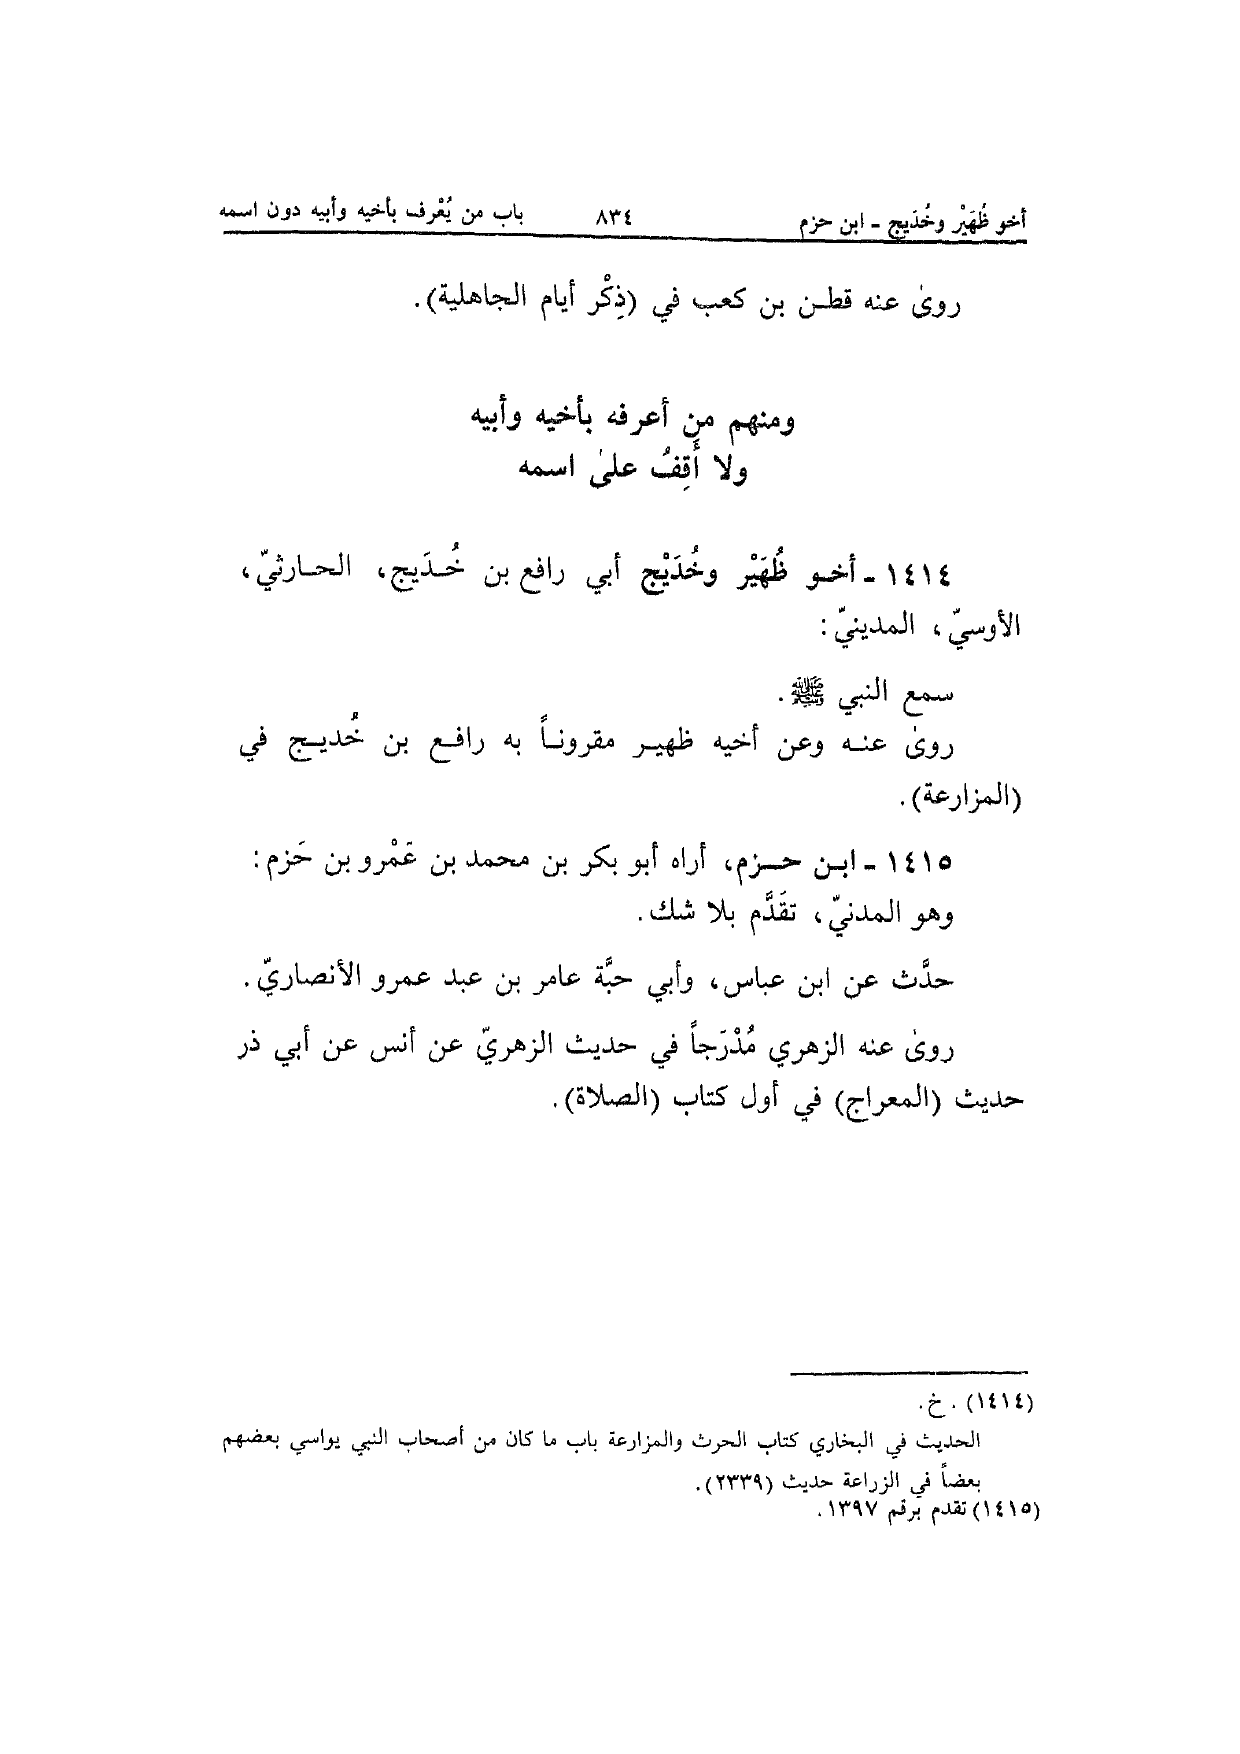 أخو ظُهَيْر وخُدَيج - ابن حزم ٨٣٤ باب من يُعْرف بأخيه وأبيه دون اسمه
روىٰ عنه قطن بن كعب في (ذِكْر أيام الجاهلية).
ومنهم من أعرفه بأخيه وأبيه
ولا أَقِفُ علىٰ اسمه
١٤١٤ - أخو ظُهَيْر وخُدَيْج أبي رافع بن خُدَيج، الحارثيّ،
الأوسيّ، المدينيّ:
سمع النبي ﷺ.
روىٰ عنه وعن أخيه ظهير مقروناً به رافع بن خُديج في
(المزارعة).
١٤١٥ - ابن حزم، أراه أبو بكر بن محمد بن عَمْرو بن حَزم:
وهو المدنيّ، تقَدَّم بلا شك.
حدَّث عن ابن عباس، وأبي حبَّة عامر بن عبد عمرو الأنصاريّ.
روىٰ عنه الزهري مُدْرَجاً في حديث الزهريّ عن أنس عن أبي ذر
حديث (المعراج) في أول كتاب (الصلاة).
(١٤١٤) . خ.
الحديث في البخاري كتاب الحرث والمزارعة باب ما كان من أصحاب النبي يواسي بعضهم
بعضاً في الزراعة حديث (٢٣٣٩).
(١٤١٥) تقدم برقم ١٣٩٧.